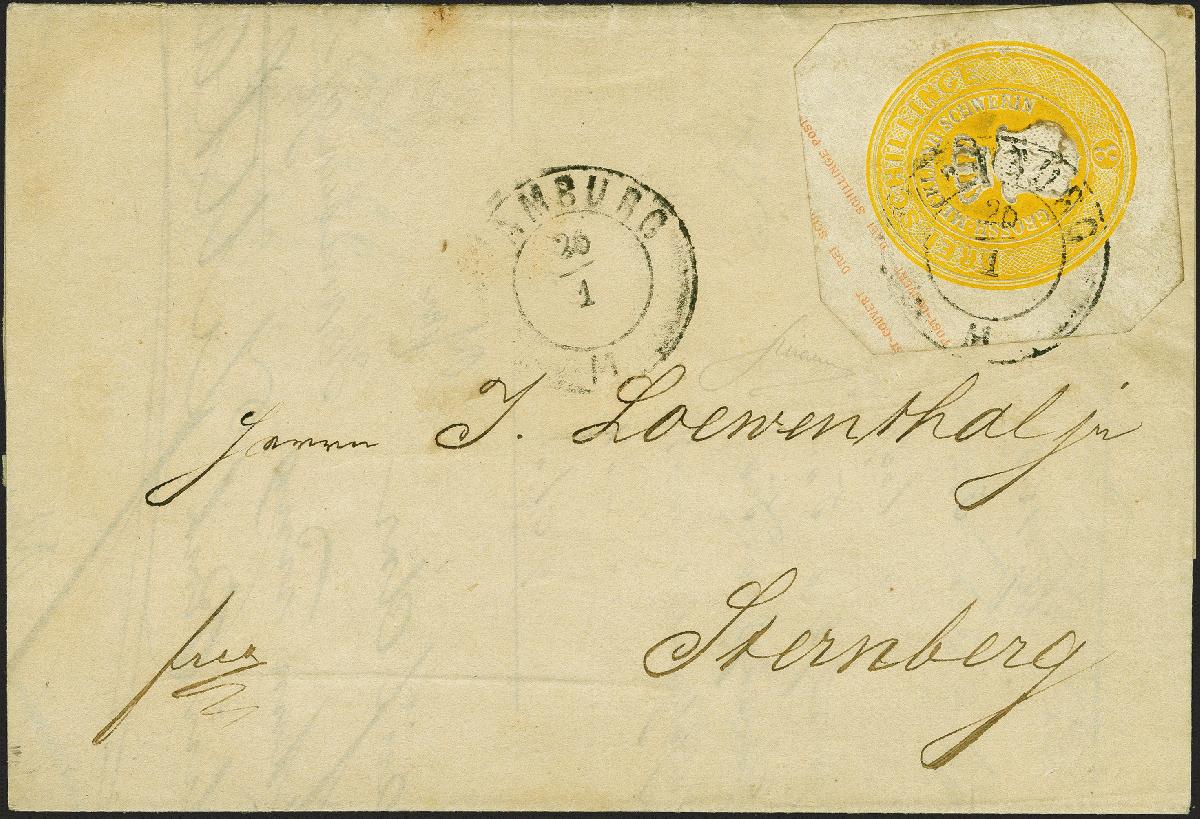 DREI SCHILLINGE
GROSSH. MECKLENB. SCHWERIN
3
SCHILLINGE POST-
POST-COUVERT DREI SCHILLINGE POST
ST-COUVERT DREI SCHI
HAMBURG
26
1
M
26
1
M
Herrn J. Loewenthal jr
Sternberg
frei